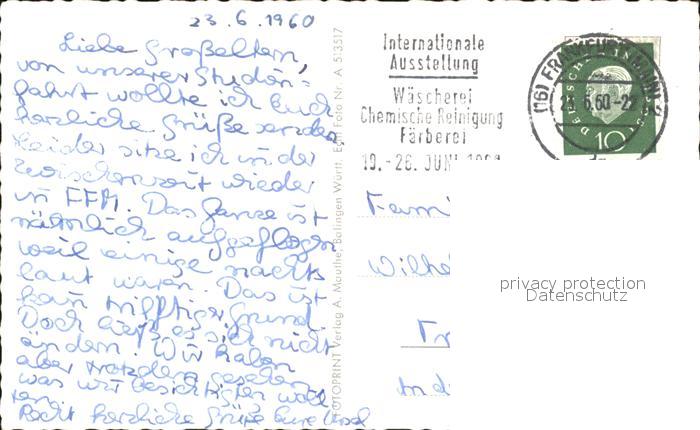 23.6.1960
Liebe Großeltern,
von unserer Studien-
fahrt wollte ich Euch
herzliche Grüße senden
Leider sitze ich in der
Zwischenzeit wieder
in FFM. Das Ganze ist
nämlich aufgeflogen
weil einige nachts
laut waren. Das ist
kein triftiger Grund.
Doch ließ es sich nicht
ändern. Wir haben
aber trotzdem gesehen
was wir besichtigen woll
ten.
Recht herzliche Grüße Eure Ursel
FOTOPRINT Verlag A. Mauthe, Balingen Württ. Echt Foto Nr. A 513517
Internationale
Ausstellung
Wäscherei
Chemische Reinigung
Färberei
19.-26. JUNI
(16) FRANKFURT (MAIN) 2
6.60-22
DEUTSCHE BUNDESPOST
10
Fami
Wilhe
Fr
privacy protection
Datenschutz